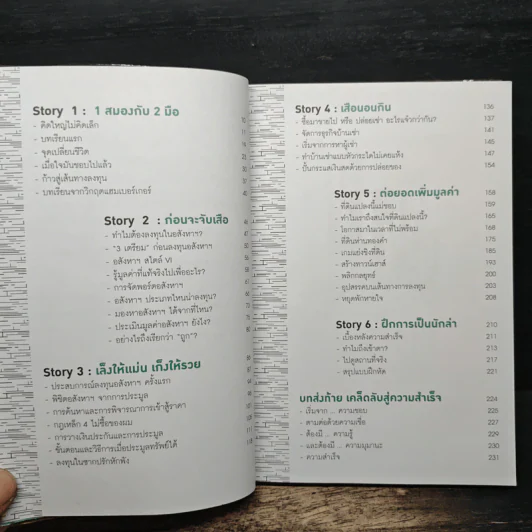 Story 1 : 1 สมองกับ 2 มือ
- คิดใหญ่ไม่คิดเล็ก
- บทเรียนแรก
- จุดเปลี่ยนชีวิต
- เมื่อใจมันชอบไปแล้ว
- ก้าวสู่เส้นทางลงทุน
- บทเรียนจากวิกฤตแฮมเบอร์เกอร์
Story 2 : ก่อนจะจับเสือ
- ทำไมต้องลงทุนในอสังหาฯ?
- "3 เตรียม" ก่อนลงทุนอสังหาฯ
- อสังหาฯ สไตล์ VI
- รู้มูลค่าที่แท้จริงไปเพื่ออะไร?
- การจัดพอร์ตอสังหาฯ
- อสังหาฯ ประเภทไหนน่าลงทุน?
- มองหาอสังหาฯ ได้จากที่ไหน?
- ประเมินมูลค่าอสังหาฯ ยังไง?
- อย่างไรถึงเรียกว่า "ถูก"?
Story 3 : เล็งให้แม่น เก็งให้รวย
- ประสบการณ์ลงทุนอสังหาฯ ครั้งแรก
- พิชิตอสังหาฯ จากการประมูล
- การค้นหาและการพิจารณาการเข้าสู้ราคา
- กฎเหล็ก 4 ไม่ซื้อของผม
- การวางเงินประกันและการประมูล
- ขั้นตอนและวิธีการเมื่อประมูลทรัพย์ได้
- ลงทุนในซากปรักหักพัง
Story 4 : เสือนอนกิน 136
- ซื้อมาขายไป หรือ ปล่อยเช่า อะไรแจ๋วกว่ากัน? 137
- จัดการธุรกิจบ้านเช่า 141
- เริ่มจากการหาผู้เช่า 145
- ทำบ้านเช่าแบบหัวกระไดไม่เคยแห้ง 147
- ปั๊นกระแสเงินสดด้วยการปล่อยของ 154
Story 5 : ต่อยอดเพิ่มมูลค่า 158
- ที่ดินแปลงนี้แม่ชอบ 159
- ทำไมเราถึงสนใจที่ดินแปลงนี้? 165
- โอกาสมาในเวลาที่ไม่พร้อม 168
- ที่ดินห่านทองคำ 175
- เกมแย่งชิงที่ดิน 185
- สร้างทาวน์เฮาส์ 193
- พลิกกลยุทธ์ 200
- อุปสรรคบนเส้นทางการลงทุน 203
- หยุดพักหายใจ 208
Story 6 : ฝึกการเป็นนักล่า 210
- เบื้องหลังความสำเร็จ 211
- ทำไมถึงเข้าตา? 213
- ไปดูสถานที่จริง 217
- สรุปแบบฝึกหัด 221
บทส่งท้าย เคล็ดลับสู่ความสำเร็จ 224
- เริ่มจาก ... ความชอบ 225
- ตามต่อด้วยความเชื่อ 227
- ต้องมี ... ความรู้ 229
- และต้องมี ... ความมุมานะ 230
- ความสำเร็จ 231